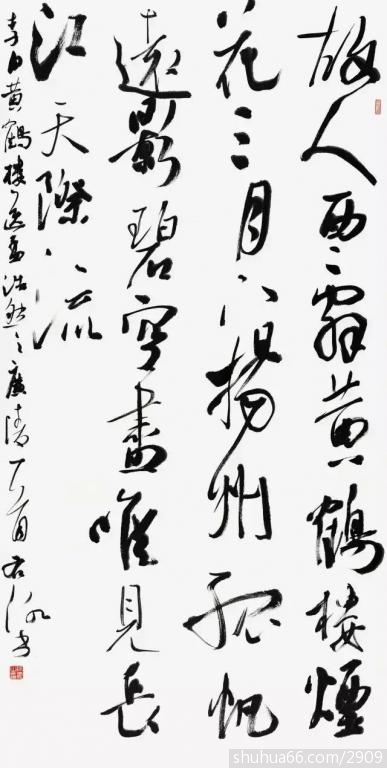 故人西辭黄鶴樓煙
花三月下揚州孤帆
遠影碧空盡唯見長
江天際流
李白黄鶴樓送孟浩然之廣陵一首
shuhua66.com/2909